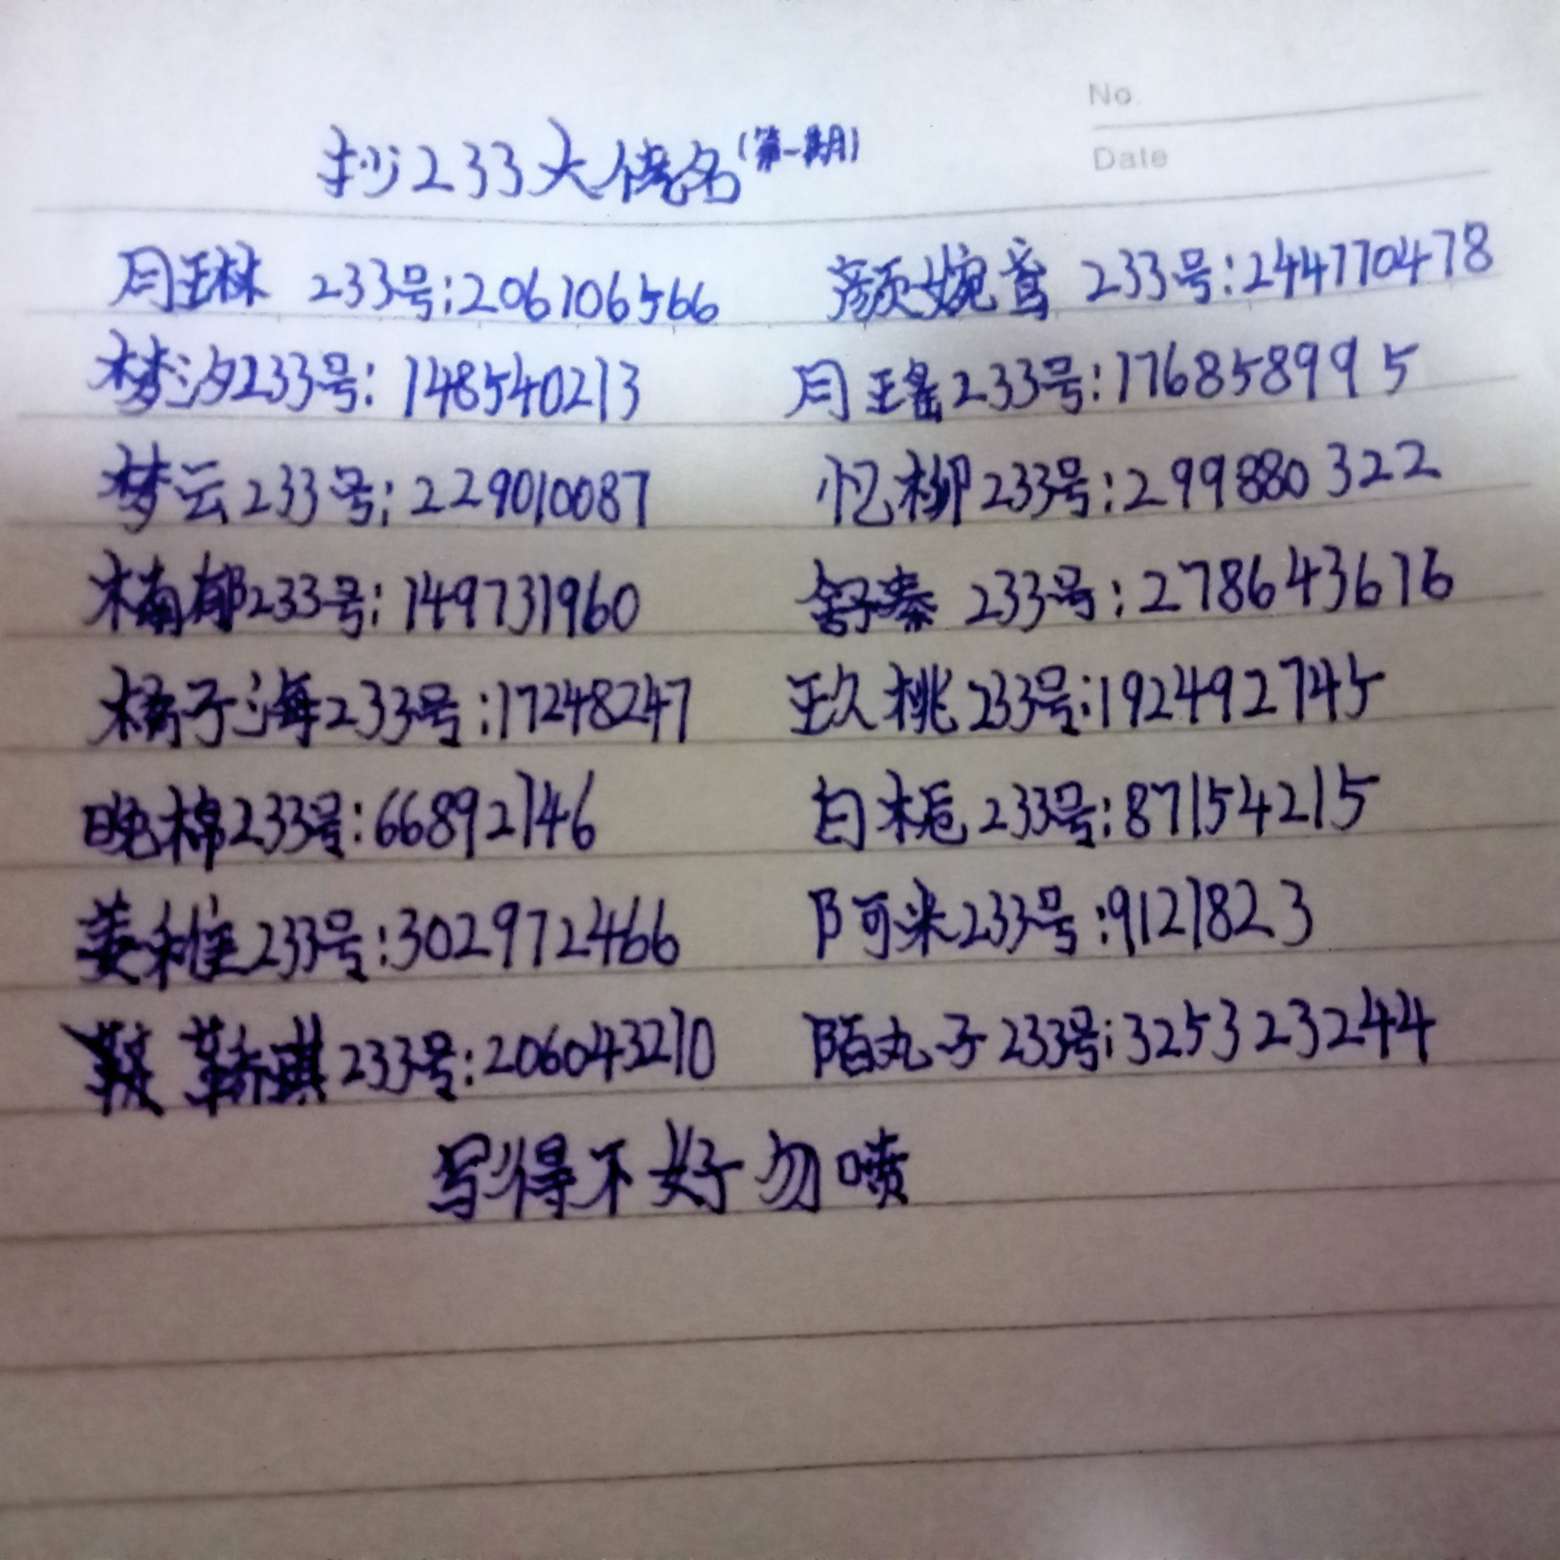 No.
Date
抄233大佬名(第一期)
月琳 233号:206106566 颜婉鸢 233号:244770478
梦汐233号:148540213 月瑶233号:176858995
梦云233号:229010087 忆柳233号:299880322
楠郁233号:149731960 舒秦 233号:278643616
橘子海233号:17248247 玖桃233号:192492745
晚棉233号:66892146 白栀233号:87154215
姜利维233号:302972466 阿米233号:9121823
233号:206043210 陌丸子233号:325323244
写得不好勿喷